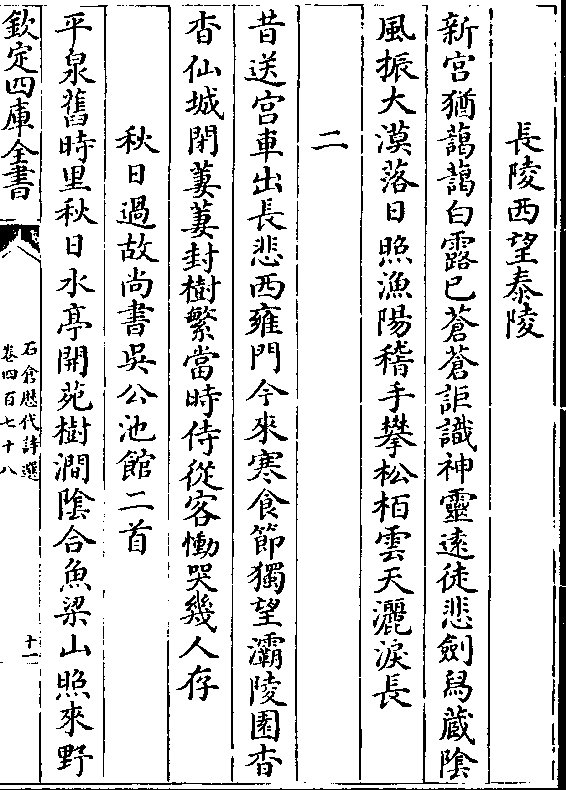 長陵西望泰陵
新宫猶藹藹白露已蒼蒼詎識神靈逺徒悲劍舄藏陰
風振大漠落日照漁陽稽手攀松栢雲天灑淚長
二
昔送宫車出長悲西雍門今來寒食節獨望灞陵園杳
杳仙城閉萋萋封樹繁當時侍從客慟哭幾人存
秋日過故尚書吳公池館二首
平泉舊時里秋日水亭開苑樹澗隂合魚梁山照來野
欽定四庫全書
石倉歴代詩選
卷四百七十八
十一